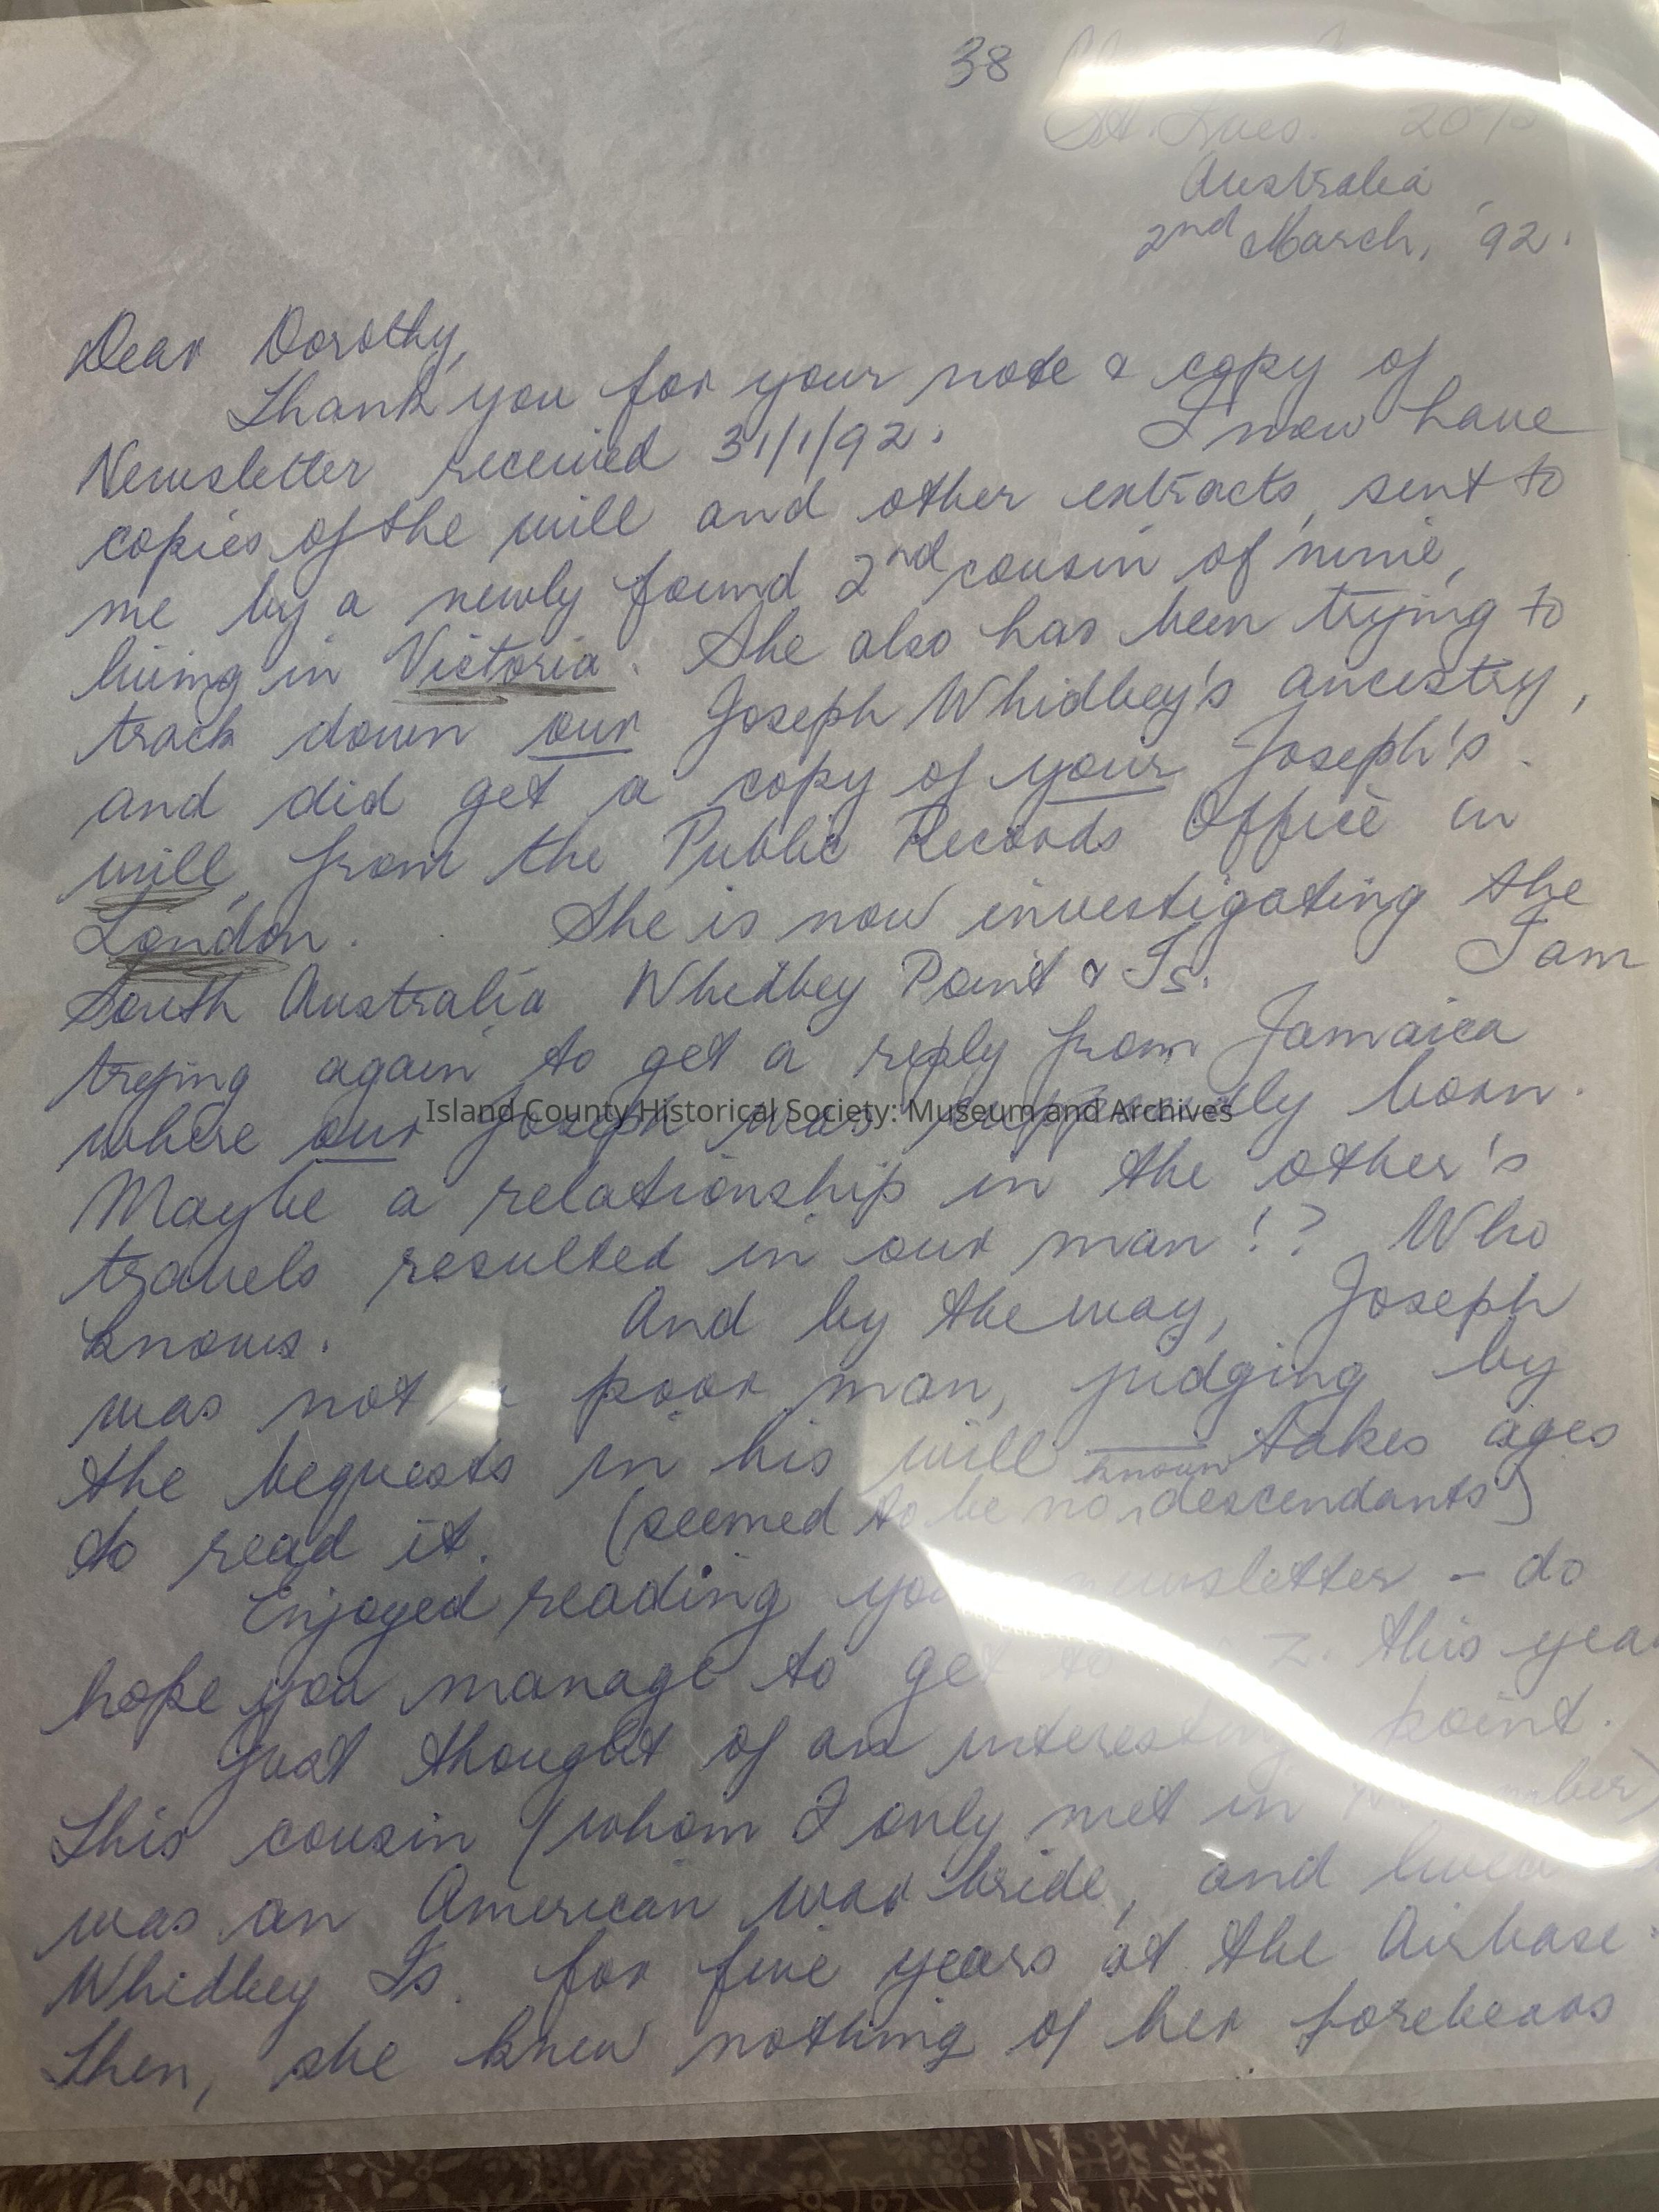 38
St. Ives. 
Australia
2nd March, '92.
Dear Dorothy,
Thank you for your note & copy of
Newsletter received 31/1/92. I now have
copies of the will and other extracts, sent to
me by a newly found 2nd cousin of mine,
living in Victoria. She also has been trying to
track down our Joseph Whidbey's ancestry,
and did get a copy of your Joseph's
will, from the Public Records Office in
London. She is now investigating the
South Australia Whidbey Point & Is. I am
trying again to get a reply from Jamaica
where our Joseph was supposedly born.
Island County Historical Society: Museum and Archives
Maybe a relationship in the other's
travels resulted in our man!? Who
knows. And by the way, Joseph
was not a poor man, judging by
the bequests in his will — takes ages
known
to read it. (seemed to be no descendants)
Enjoyed reading your newsletter - do
hope you manage to get to Z. this year
Just thought of an interesting point.
This cousin (whom I only met in November)
was an American war bride, and lived
Whidbey Is. for five years at the Airbase
Then, she knew nothing of her forebears